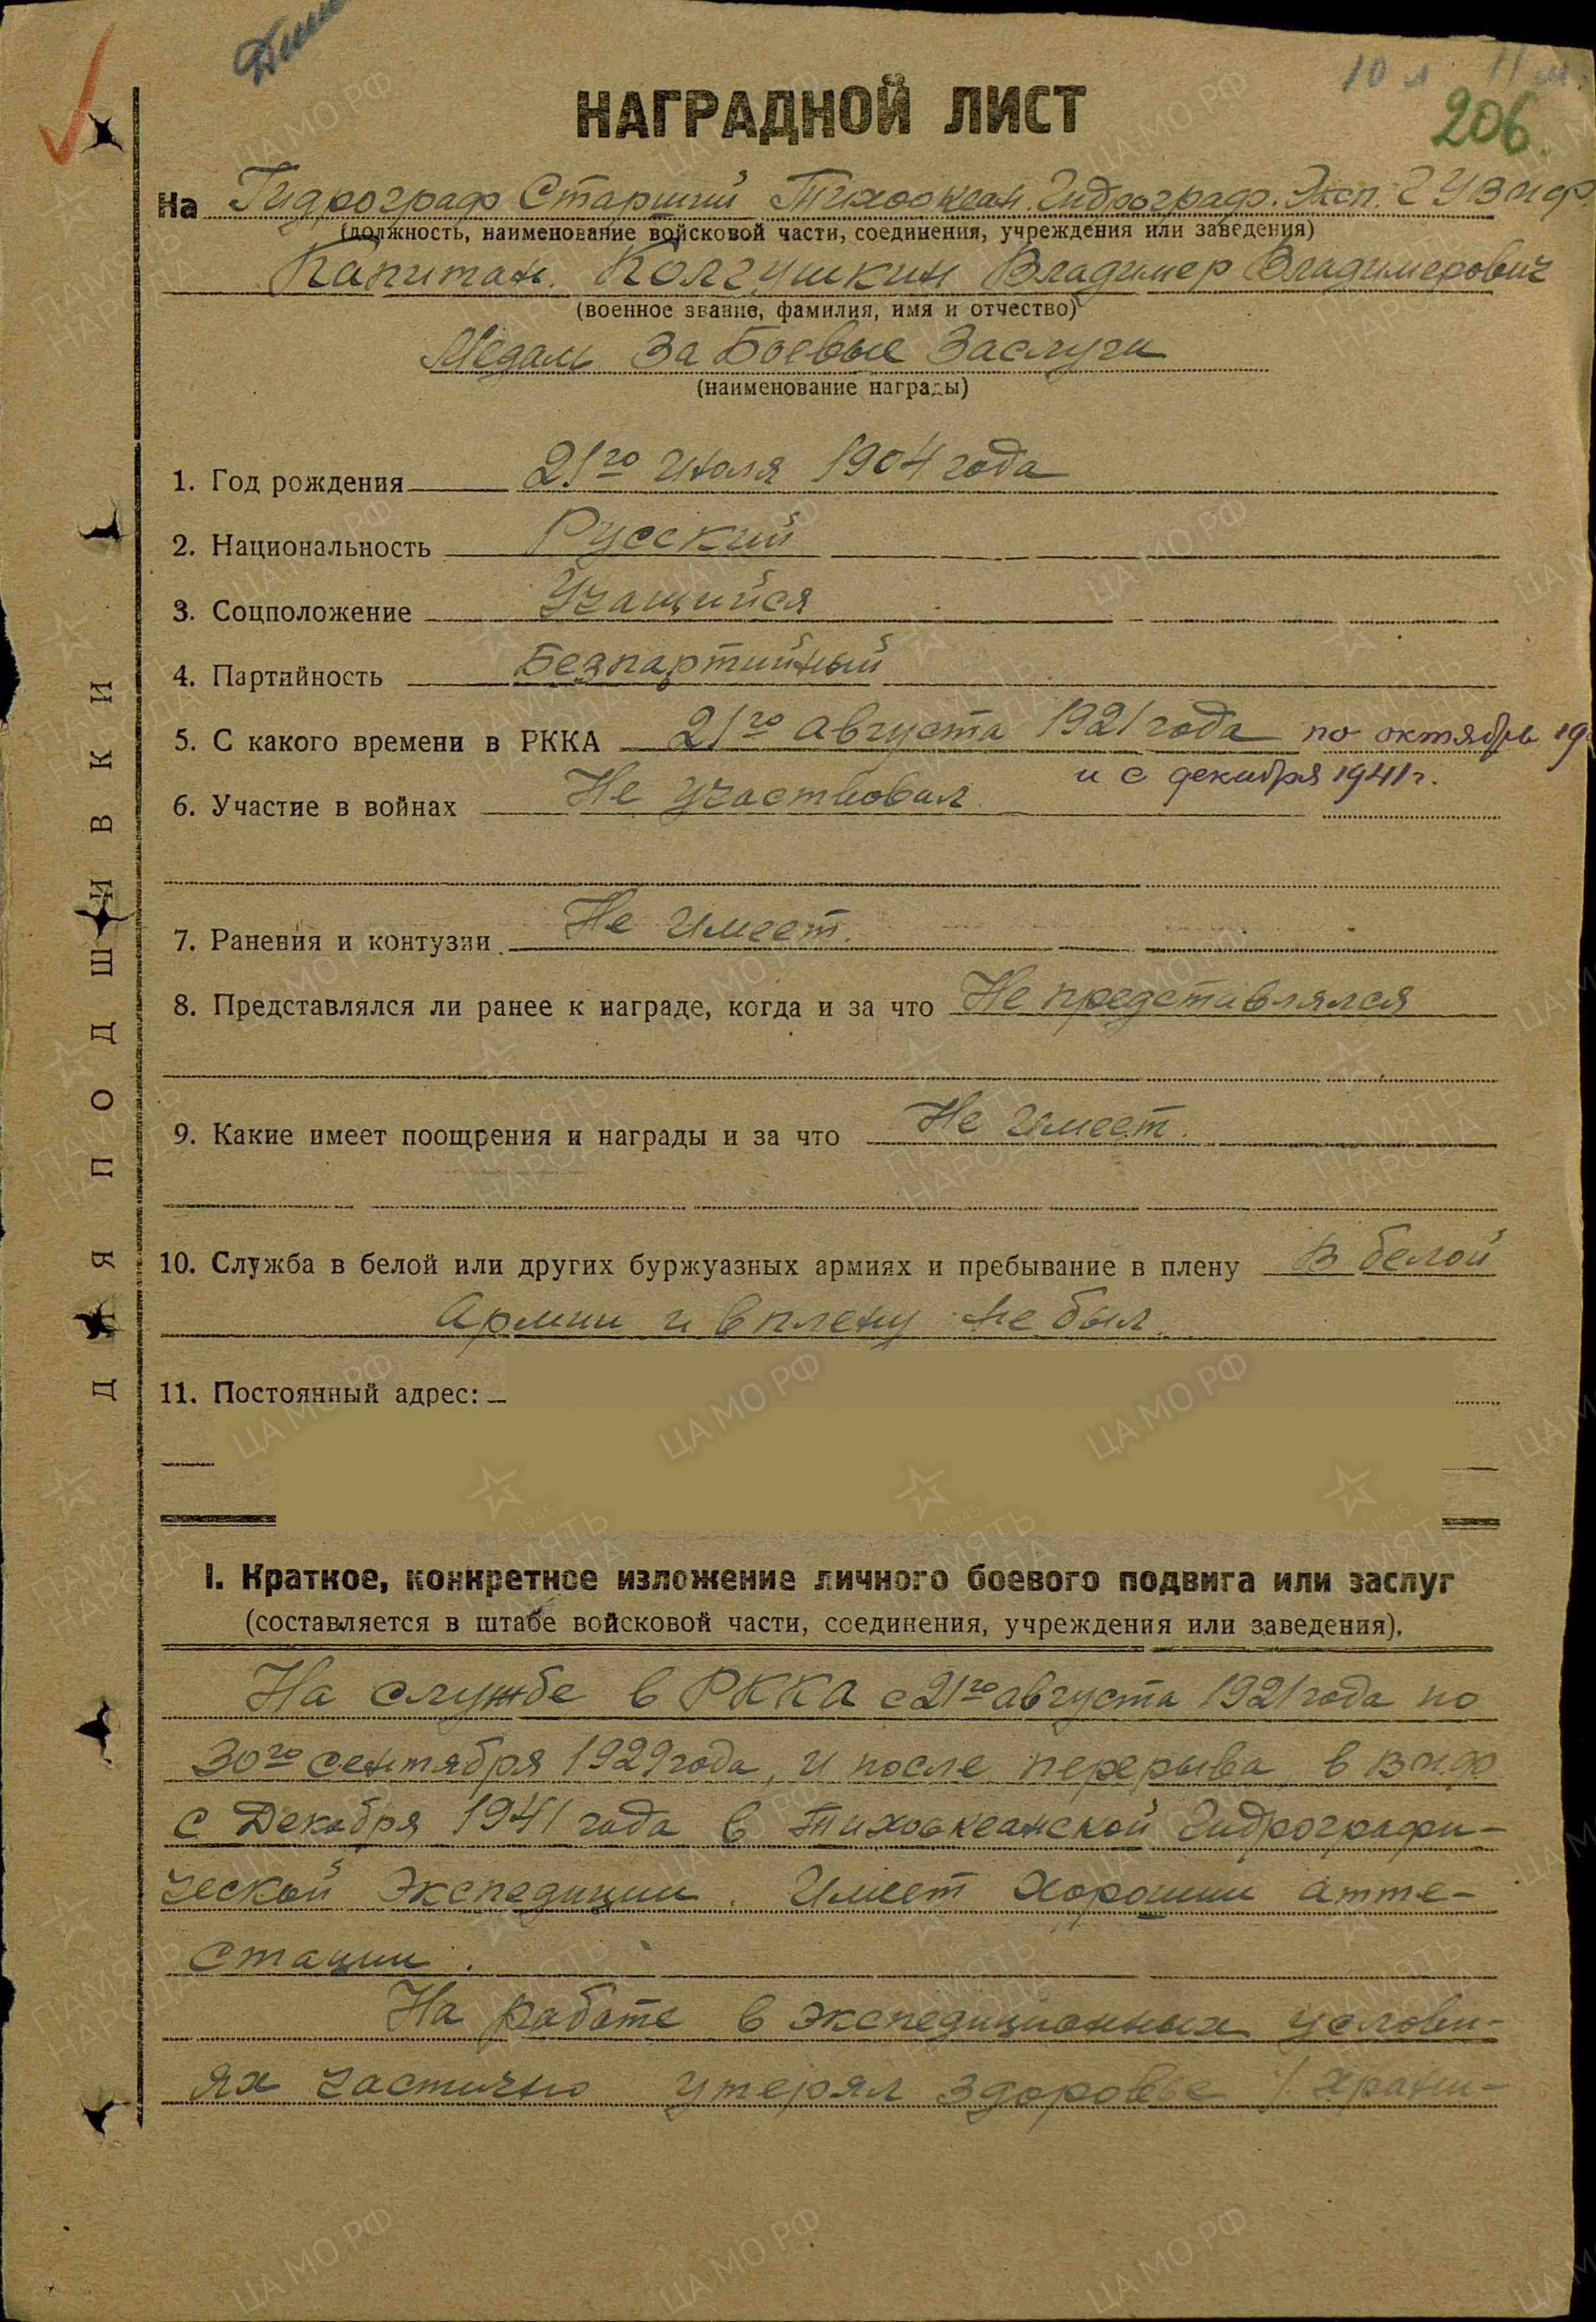 10 л 11 м.
206.
НАГРАДНОЙ ЛИСТ
На Гидрограф Старший Тихоокеан. Гидрограф. Эксп. ГУВМФ.
(должность, наименование войсковой части, соединения, учреждения или заведения)
Капитан. Колгушкин Владимер Владимерович
(военное звание, фамилия, имя и отчество)
Медаль За Боевые Заслуги
(наименование награды)
1. Год рождения 21го Июля 1904 года
2. Национальность Русский
3. Соцположение Учащийся
4. Партийность Безпартийный
5. С какого времени в РККА 21го августа 1921 года по октябрь 19
и с декабря 1941 г.
6. Участие в войнах Не участвовал
7. Ранения и контузии Не имеет.
8. Представлялся ли ранее к награде, когда и за что Не представлялся
9. Какие имеет поощрения и награды и за что Не имеет.
10. Служба в белой или других буржуазных армиях и пребывание в плену В белой
Армии и в плену не был.
11. Постоянный адрес:
I. Краткое, конкретное изложение личного боевого подвига или заслуг
(составляется в штабе войсковой части, соединения, учреждения или заведения).
На службе в РККА с 21го августа 1921 года по
30го сентября 1929 года, и после перерыва в ВМФ
с Декабря 1941 года в Тихоокеанской Гидрографи-
ческой Экспедиции. Имеет хорошии атте-
стации.
На работе в экспедиционных услови-
ях частично утерял здоровье / хрони-
ДЛЯ ПОДШИВКИ
ЦА МО РФ
ПАМЯТЬ НАРОДА